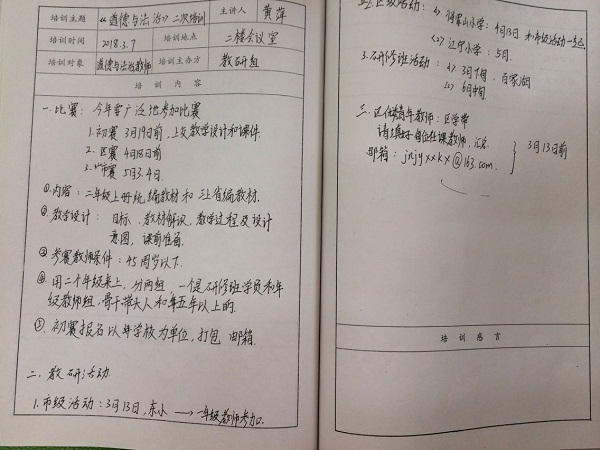 培训主题 《道德与法治》二次培训 主讲人 黄萍
培训时间 2018.3.7 培训地点 二楼会议室
培训对象 道德与法治教师 培训主办方 教研组
培训内容
一.比赛：今年要广泛地参加比赛
1.初赛 3月19日前,上交教学设计和课件.
2.区赛 4月18日前
3.市赛 5月3.4日.
①内容：二年级上册统编教材和三上省编教材.
②教学设计：目标、教材解说、教学过程及设计
意图，课前准备.
③参赛教师条件：45周岁以下.
④用二个年级来上，分两组，一个是研修班学员和年
级教师组，骨干带头人和年五年以上的.
⑤、初赛报名以学校为单位,打包 邮箱.
二.教研活动
1.市级活动：3月13日,东小 → 一年级教师参加.
2.区级活动：
小学：4月13日.和市级活动一起
(2)辽宁小学：5月.
3.研修班活动：(1) 3月下旬
(2) 6月中旬
三.
3月13日前
邮箱：jxjyxxkx@163.com.
培训感言